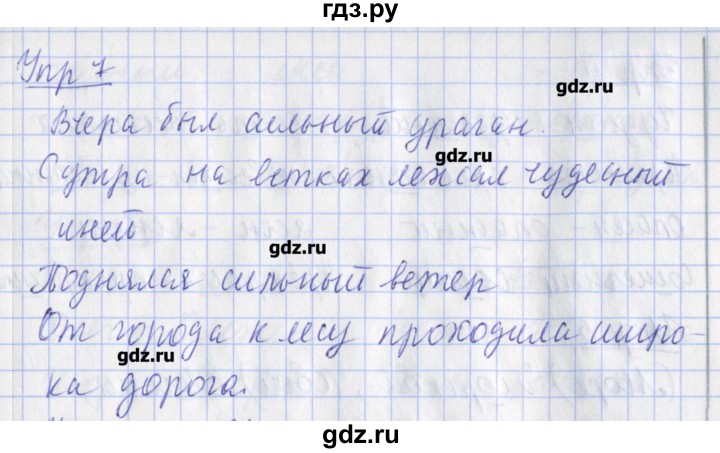 гдз.ру
Упр 7
gdz.ru
Вчера был сильный ураган.
gdz.ru
С утра на ветках лежал чудесный
иней
gdz.ru
Поднялся сильный ветер
От города к лесу проходила широ-
gdz.ru
ка дорога.
gdz.ru